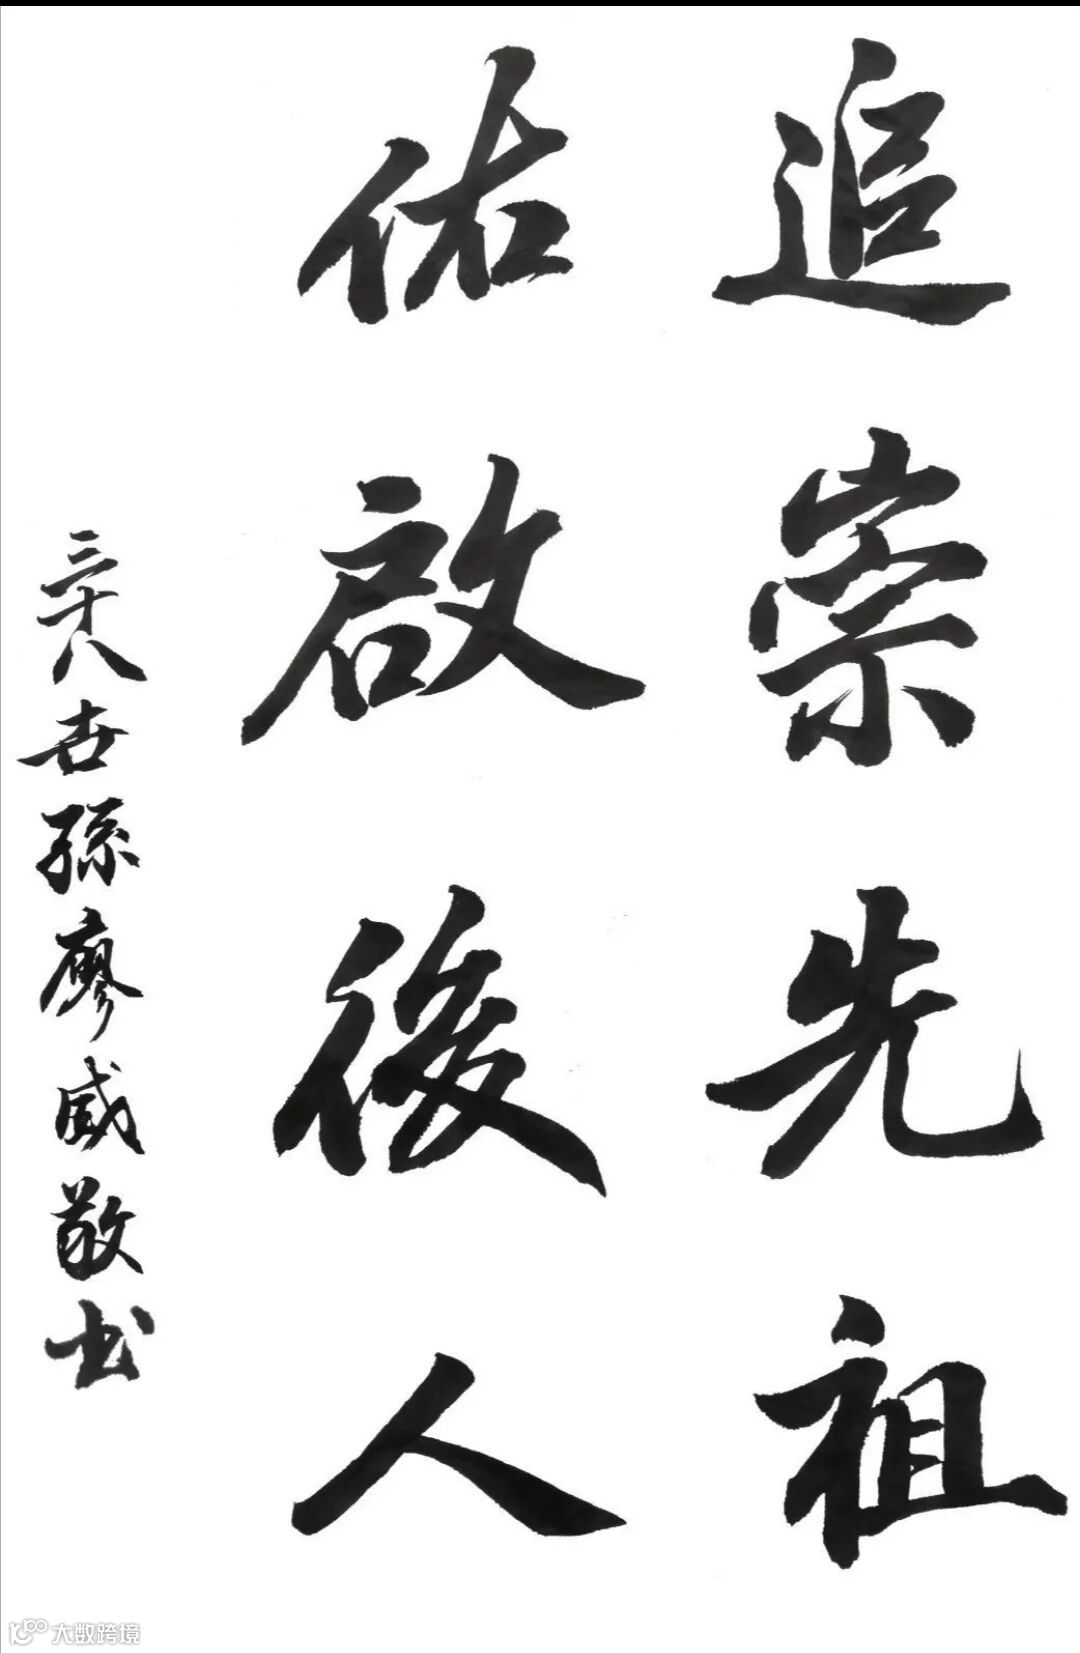 追崇先祖
佑啟後人
三十八世孫廖威敬书
大数跨境